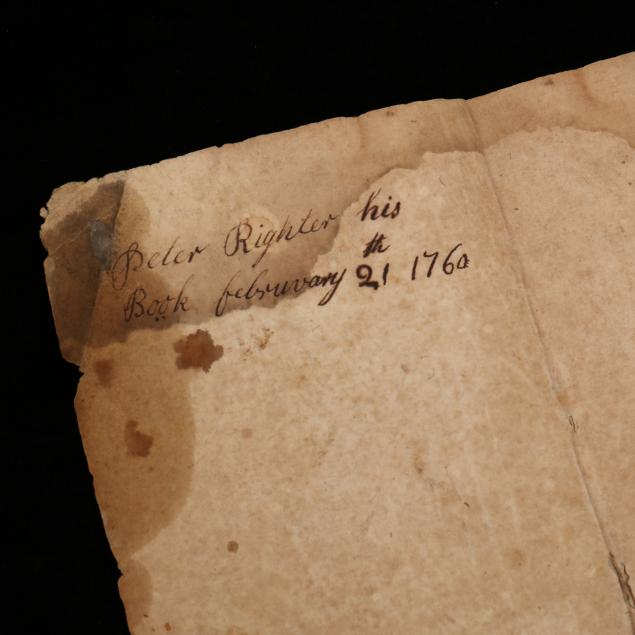 Peter Righter his
Book februvary 21th 1760